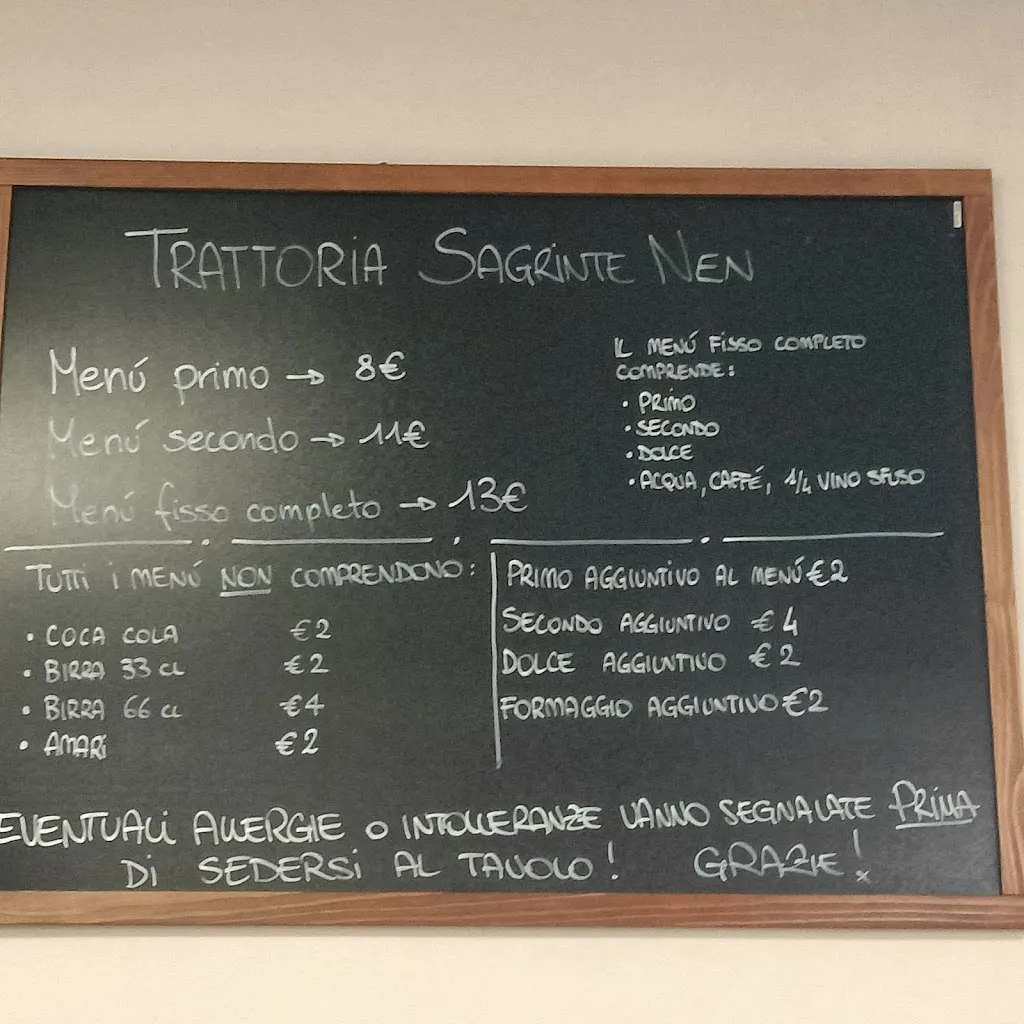 TRATTORIA SAGRINTE NEN
Menú primo → 8€
Menú secondo → 11€
Menú fisso completo → 13€
IL MENÚ FISSO COMPLETO
COMPRENDE:
• PRIMO
• SECONDO
• DOLCE
• ACQUA, CAFFÉ, 1/4 VINO SFUSO
TUTTI I MENÚ NON COMPRENDONO:
• COCA COLA €2
• BIRRA 33 CL €2
• BIRRA 66 CL €4
• AMARI €2
PRIMO AGGIUNTIVO AL MENÚ €2
SECONDO AGGIUNTIVO €4
DOLCE AGGIUNTIVO €2
FORMAGGIO AGGIUNTIVO €2
EVENTUALI ALLERGIE O INTOLLERANZE VANNO SEGNALATE PRIMA
DI SEDERSI AL TAVOLO! GRAZIE!